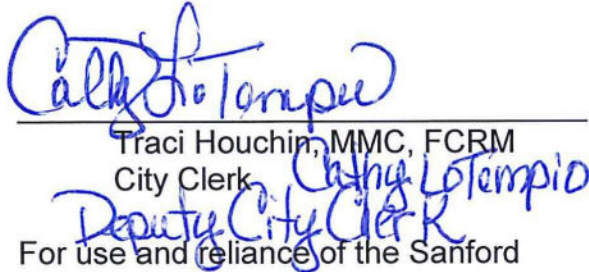 Cathy LoTempio
Traci Houchin, MMC, FCRM
City Clerk Cathy LoTempio
Deputy City Clerk
For use and reliance of the Sanford